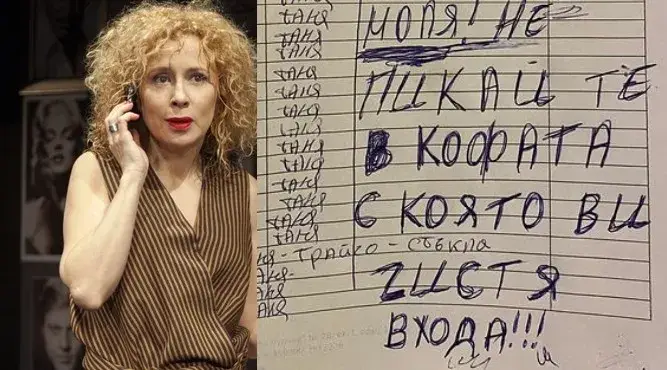 МОЛЯ! НЕ
ПИКАЙ ТЕ
В КОФАТА
С КОЯТО ВИ
ЧИСТЯ
ВХОДА!!!
таня
таня
таня
таня
таня
таня
таня
таня
таня
таня
таня
таня
таня
- Трайко - стъкла
таня -
таня
таня